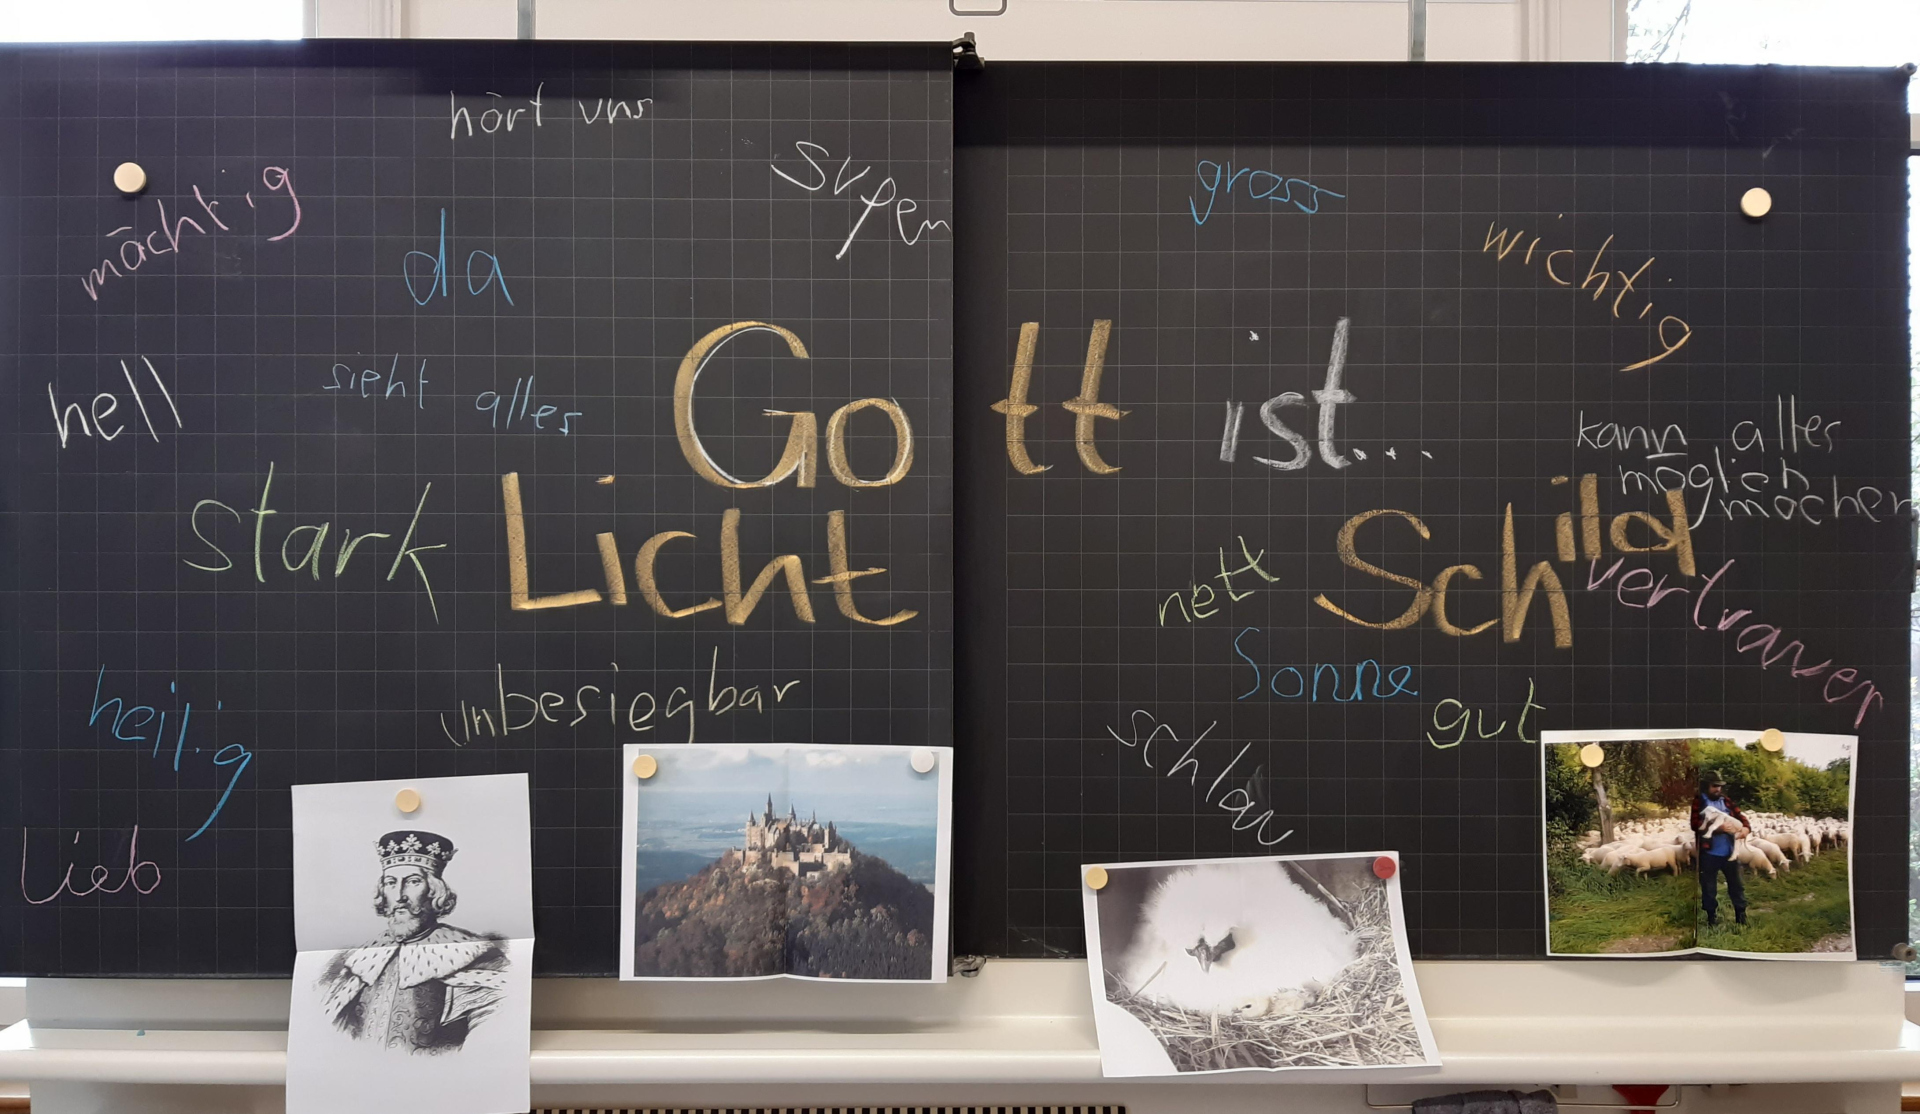 hört uns
mächtig
da
gross
wichtig
hell
sieht alles
Gott ist...
kann alles
möglich
machen
stark
Licht
Schild
nett
vertrauen
Sonne
heilig
unbesiegbar
gut
schlau
Lieb